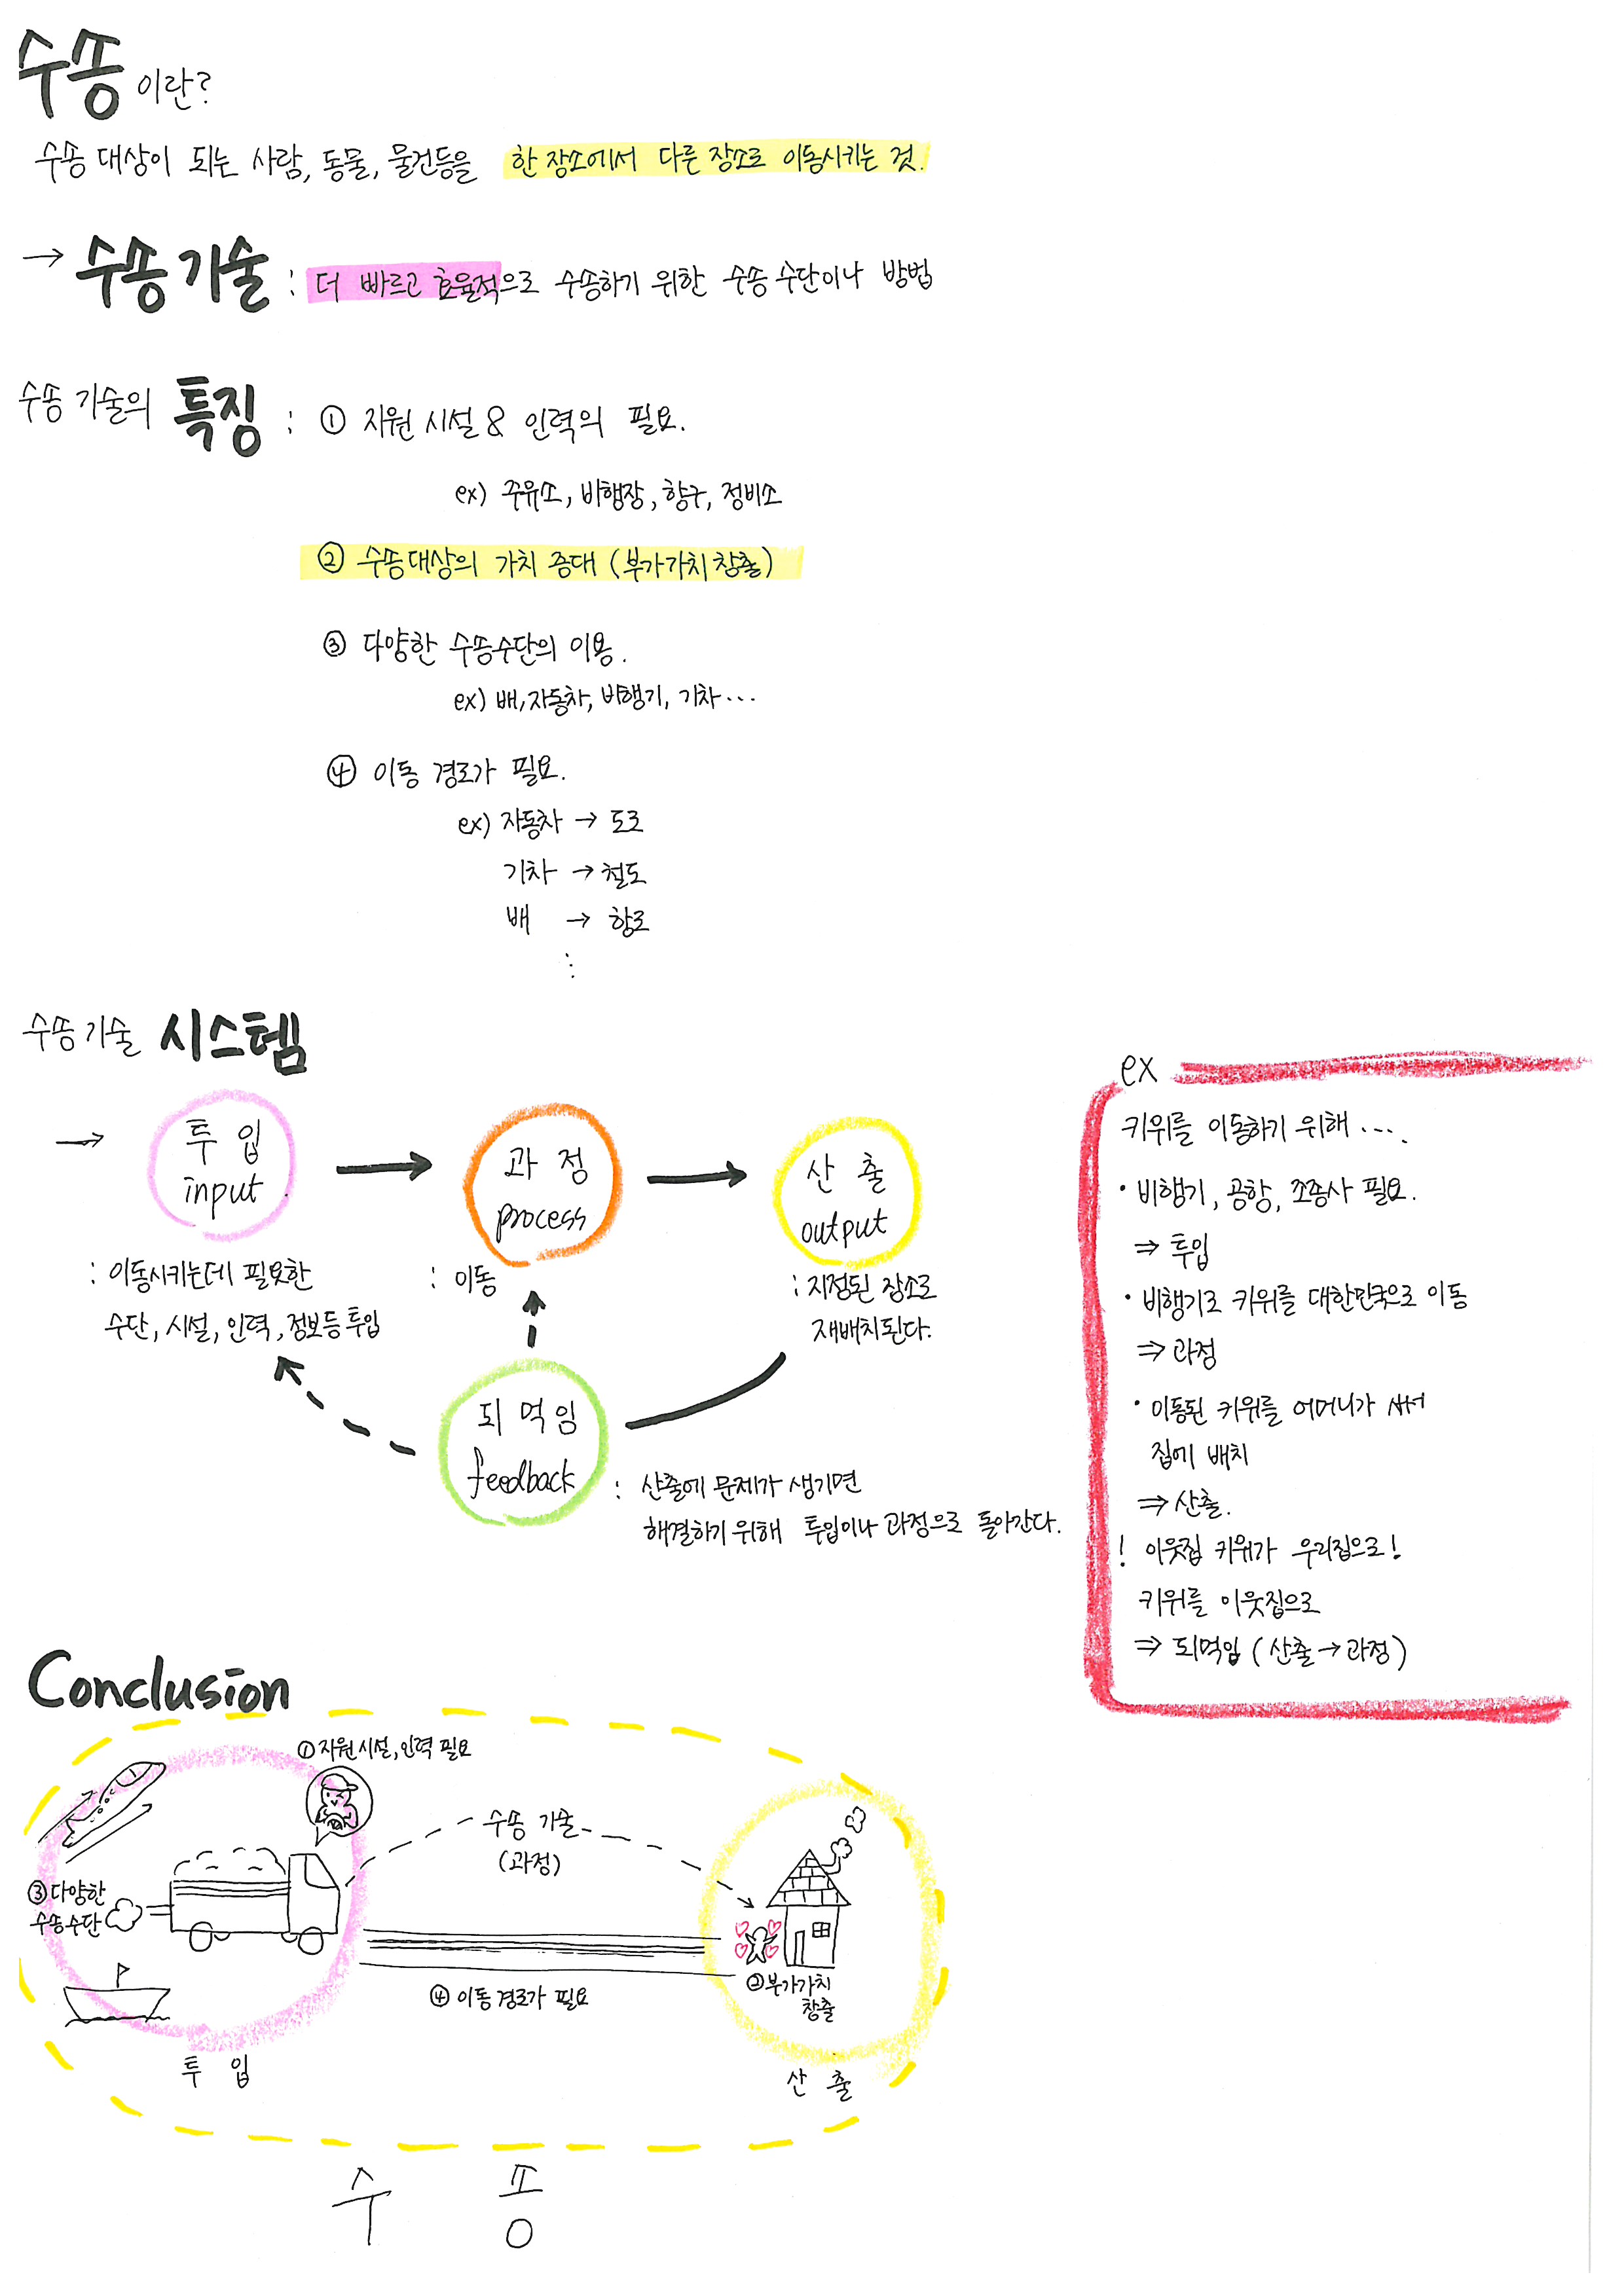 수송이란?
수송 대상이 되는 사람, 동물, 물건등을 한 장소에서 다른 장소로 이동시키는 것.
→ 수송 기술 : 더 빠르고 효율적으로 수송하기 위한 수송 수단이나 방법
수송 기술의 특징 : ① 지원 시설 & 인력의 필요.
ex) 주유소, 비행장, 항구, 정비소
② 수송대상의 가치 증대 (부가가치 창출)
③ 다양한 수송수단의 이용.
ex) 배, 자동차, 비행기, 기차...
④ 이동 경로가 필요.
ex) 자동차 → 도로
기차 → 철도
배 → 항로
⋮
수송 기술 시스템
→ 투입
input
: 이동시키는데 필요한
수단, 시설, 인력, 정보등 투입
과정
process
: 이동
산출
output
: 지정된 장소로
재배치된다.
되먹임
feedback
: 산출에 문제가 생기면
해결하기 위해 투입이나 과정으로 돌아간다.
ex
키위를 이동하기 위해....
· 비행기, 공항, 조종사 필요.
⇒ 투입
· 비행기로 키위를 대한민국으로 이동
⇒ 과정
· 이동된 키위를 어머니가 사서
집에 배치
⇒ 산출.
! 이웃집 키위가 우리집으로!
키위를 이웃집으로
⇒ 되먹임 (산출→과정)
Conclusion
① 지원 시설, 인력 필요
수송 기술
(과정)
③ 다양한
수송수단
④ 이동 경로가 필요
② 부가가치
창출
투입
산출
수송